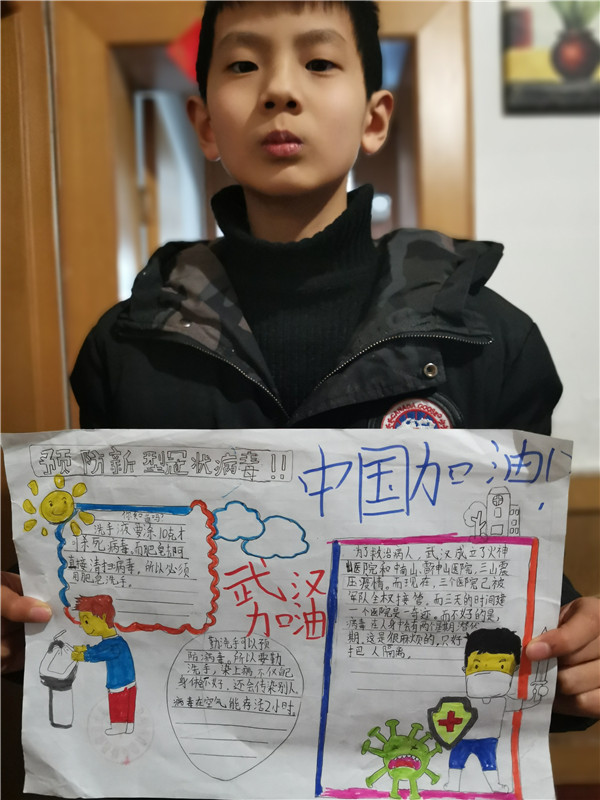 CANADA GOOSE
预防新型冠状病毒!!
中国加油!
你知道吗?
洗手液要涂10克才
可杀死病毒,而肥皂却可
直接清扫病毒,所以必须
用肥皂洗手。
武汉
加油
勤洗手可以预
防病毒,所以要勤
洗手,染上病不仅自己
身体不好,还会传染别人。
病毒在空气能存活2小时。
为了救治病人,武汉成立了火神
山医院和
三山震
压疫情,而现在,三个医院已被
军队全权接管,而三天的时间建
一个医院是一奇迹。而不好的是,
病毒在人身上有两个星期的潜伏
期,这是很麻烦的,只好
把人隔离。